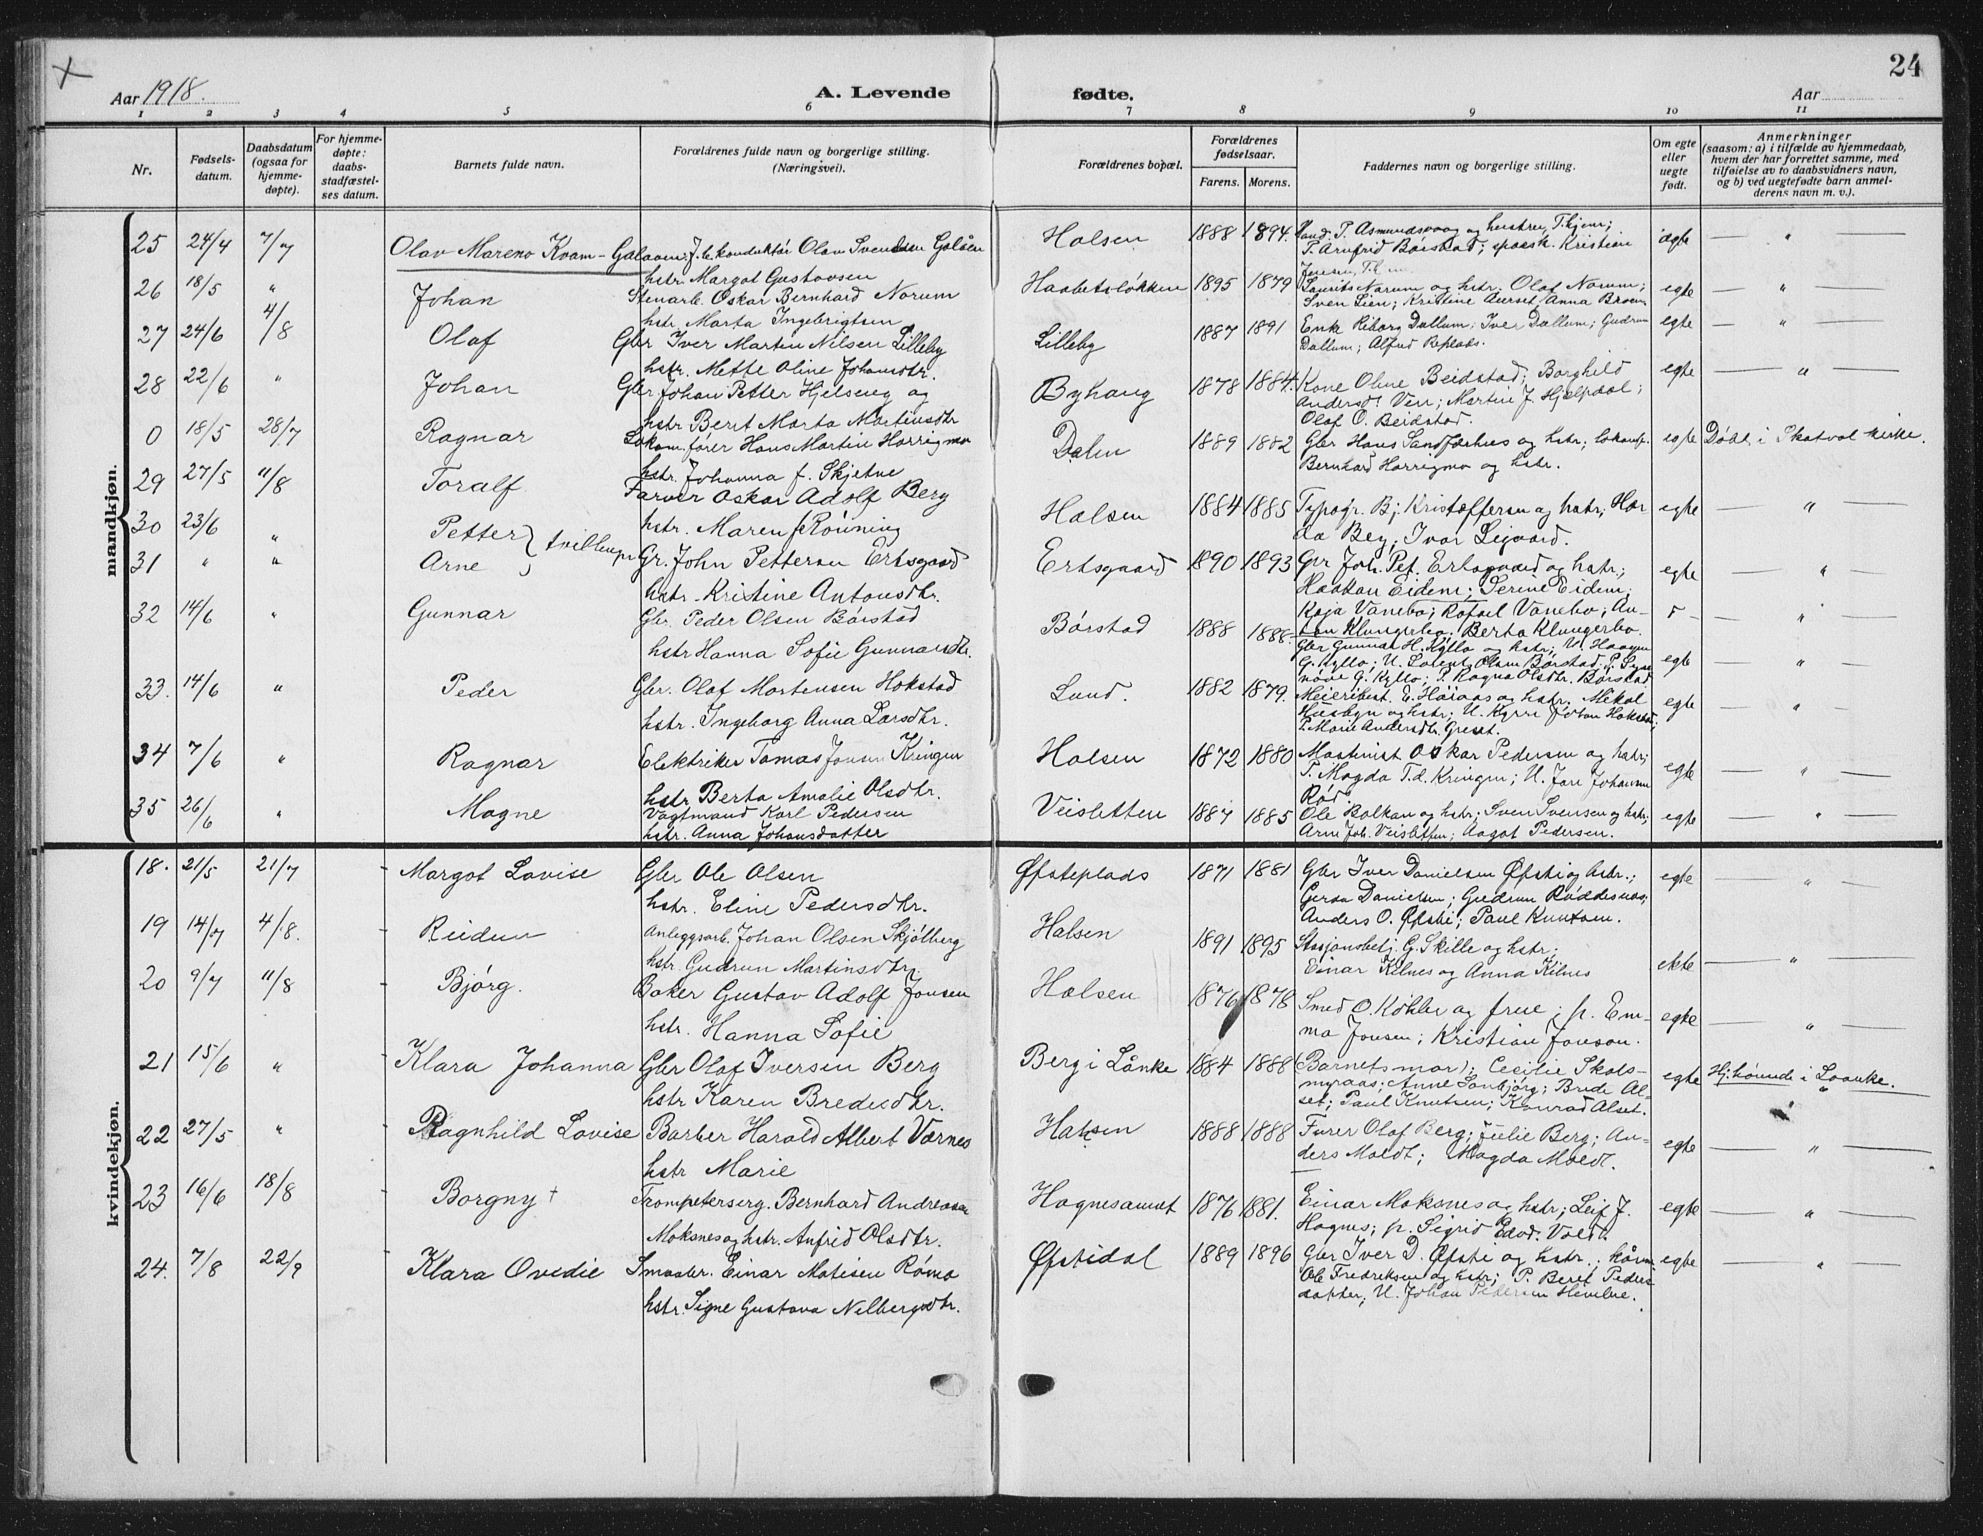 24
Aar 1918.
A. Levende fødte.
Aar
1 2 3 4 5 6 7 8 9 10 11
Nr.
Fødsels-
datum.
Daabsdatum
(ogsaa for
hjemme-
døpte).
For hjemme-
døpte:
daabs-
stadfæstel-
ses datum.
Barnets fulde navn.
Forældrenes fulde navn og borgerlige stilling.
(Næringsvei).
Forældrenes bopæl.
Forældrenes
fødselsaar.
Farens. Morens.
Faddernes navn og borgerlige stilling.
Om egte
eller
uegte
født.
Anmerkninger
(saasom: a) i tilfælde av hjemmedaab,
hvem der har forrettet samme, med
tilføielse av to daabsvidners navn,
og b) ved uegtefødte barn anmel-
derens navn m. v.).
mandkjøn.
25 24/4 7/7 Olav Mareno Kvam-Galaaen J.b.konduktör Olav Svendsen Galåen Halsen 1888 1894. T. Asmundsvaag og hustru, T.hjem; egte — " —
hstr. Margot Gustavsen T. Arnfrid Börstad; Kristian Jonsen,
26 18/5 " Johan Stenarb. Oskar Bernhard Norum Haabetsløkken 1895 1879 Laurits Narum og hstr; Olaf Norum; egte — " —
hstr. Marta Ingebrigtsen Sven Lien; Kristine Aurset; Anna
27 24/6 4/8 Olaf Gbr Iver Martin Nilsen Lilleby Lilleby 1887 1891 Enk Dallum; Iver Dallum; Gudrun egte — " —
hstr. Mette Oline Johansdtr. Dallum; Alfred
28 22/6 " Johan Gbr Johan Petter Hjelseng og Byhaug 1878 1884. Kone Oline Beidstad; Borghild egte — " —
hstr Berit Marta Martinsdtr Andersdt. Ven; Martin J. Hjelpdal;
Olaf O. Beidstad.
0 18/5 28/7 Ragnar Lokom.fører Hans Martin Harrigmo Dalen 1889 1882 Gbr Hans Sandfærhus og hstr; Lokomf. egte Døbt i Skatval kirke.
hstr. Johanna f. Skjetne Bernhard Harrigmo og hstr.
29 27/5 11/8 Toralf Farver Oskar Adolf Berg Halsen 1884 1885 Typogr. Bj. Kristoffersen og hstr; Har- egte — " —
hstr. Maren f. Rönning da Berg; Ivar Ligaard.
30 23/6 " Petter } tvillinger
31 " " Arne Gr. John Pettersen Ertsgaard Ertsgaard 1890 1893 Gbr Joh. Pet. Ertsgaard og hstr; egte — " —
hstr. Kristine Antonsdtr. Haakon Eidem; Serine Eidem;
Kaja Vanebo; Rafael Vanebo; An-
ton Klungerbo; Berta Klungerbo.
32 14/6 " Gunnar Gbr. Peder Olsen Börstad Börstad 1888 1888. Gbr Gunnar H. Kyllo og hstr; egte — " —
hstr Hanna Sofie Gunnarsdtr. G. Kyllo; U. Olsen Börstad; P.
G. Kyllo; P. Ragna Olsdtr. Börstad
33. 14/6 " Peder Gbr. Olaf Mortensen Hokstad Lund. 1882 1879. Meieribest. E. Höiaas og hstr, Mikal egte — " —
hstr. Ingeborg Anna Larsdtr. Husbyn og hstr; U. Johan Hokstad;
P. Marie Andersdtr. Greset.
34 7/6 " Ragnar Elektriker Tomas Jonsen Kringen Halsen 1872 1880 Maskinist Oskar Pedersen og hstr; egte — " —
hstr Berta Amalie Olsdtr. T. Magda T.d. Kringen; U. Jon
Röd
35 26/6 " Magne Vagtmand Karl Pedersen Veisletten 1887 1885 Ole Balkan og hstr; Sven Svensen og hstr, egte — " —
hstr. Anna Johansdatter Arne Joh. Veisletten; Aagot Pedersen.
kvindekjøn.
18. 21/5 21/7 Margot Lovise Gbr Ole Olsen Øfsteplads 1871 1881 Gbr Iver Danielsen Øfsti og hstr.; egte — " —
hstr. Eline Pedersdtr. Danielsen; Gudrun Röddesnes;
Anders O. Øfsti; Paul Knutsen.
19 14/7 4/8. Reidun Anleggsarb. Johan Olsen Skjölberg Halsen 1891 1895 Stasjonsbetj. G. Skille og hstr; ekte — " —
hstr Gudrun Martinsdtr. Einar Kilnes og Anna Kilnes
20 9/7 11/8 Björg. Baker Gustav Adolf Jonsen Halsen 1876 1878 Smed O. Köhler og frue; p. Em- egte — " —
hstr. Hanna Sofie ma Jonsen; Kristian Jonson.
21 15/6 " Klara Johanna Gbr Olaf Iversen Berg Berg i Lånke 1884 1888 (Barnets mor); Cecilie Skols- egte Hj. i Laanke.
hstr Karen Bredesdtr. myraas; Anne Sonbjörg; Brede Al-
set; Paul Knutsen; Konrad Alset.
22 27/5 " Ragnhild Lovise Barber Harald Albert Værnes Halsen 1888 1888 Furer Olaf Berg; Julie Berg; An- egte — " —
hstr Marie ders Moldt; Magda Moldt.
23 16/6 18/8 Borgny + Trompeterserg. Bernhard Andreassen Hognesaunet 1876 1881. Einar Moksnes og hstr; Leif J. egte — " —
Moksnes og hstr. Anfrid Olsdtr. Hognes; p. Sigrid Edvd. Voldt.
24. 7/8 22/9 Klara Ovedie Smaabr. Einar Matisen Römo Øfstidal 1889 1896 Gbr Iver D. Øfsti og hstr.; egte — " —
hstr. Signe Gustava Nilbergsdtr. Ole Fredriksen og hstr; P. Berit Peders
datter, U. Johan Pedersen